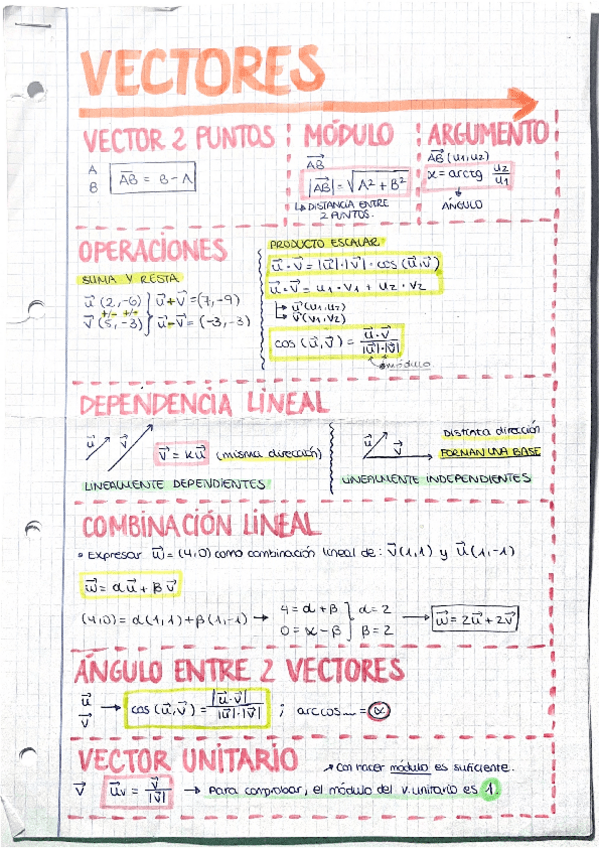 VECTORES
VECTOR 2 PUNTOS
A
B
AB⃗ = B - A
MÓDULO
AB⃗
|AB⃗| = √A² + B²
↳ DISTANCIA ENTRE
2 PUNTOS.
ARGUMENTO
AB⃗ (u₁, u₂)
α = arctg u₂/u₁
↓
ÁNGULO
OPERACIONES
SUMA Y RESTA
u⃗ (2, -6) } u⃗ + v⃗ = (7, -9)
+/- +/-
v⃗ (5, -3) } u⃗ - v⃗ = (-3, -3)
PRODUCTO ESCALAR
u⃗ · v⃗ = |u⃗| · |v⃗| · cos (u⃗, v⃗)
u⃗ · v⃗ = u₁ · v₁ + u₂ · v₂
↳ u⃗ (u₁, u₂)
↳ v⃗ (v₁, v₂)
cos (u⃗, v⃗) = u⃗ · v⃗ / |u⃗| · |v⃗|
módulo
DEPENDENCIA LINEAL
u⃗ v⃗
v⃗ = K u⃗ (misma dirección)
LINEALMENTE DEPENDIENTES
u⃗ v⃗
Distinta dirección
FORMAN UNA BASE
LINEALMENTE INDEPENDIENTES
COMBINACIÓN LINEAL
• Expresar w⃗ = (4, 0) como combinación lineal de: v⃗ (1, 1) y u⃗ (1, -1)
w⃗ = α u⃗ + β v⃗
(4, 0) = α (1, 1) + β (1, -1) → 4 = α + β } α = 2 → w⃗ = 2u⃗ + 2v⃗
0 = α - β } β = 2
ÁNGULO ENTRE 2 VECTORES
u⃗
v⃗ → cos (u⃗, v⃗) = |u⃗ · v⃗| / |u⃗| · |v⃗| ; arccos ... = α
VECTOR UNITARIO
↗ Con hacer módulo es suficiente.
v⃗ u⃗v = v⃗ / |v⃗| → Para comprobar, el módulo del v. unitario es 1.